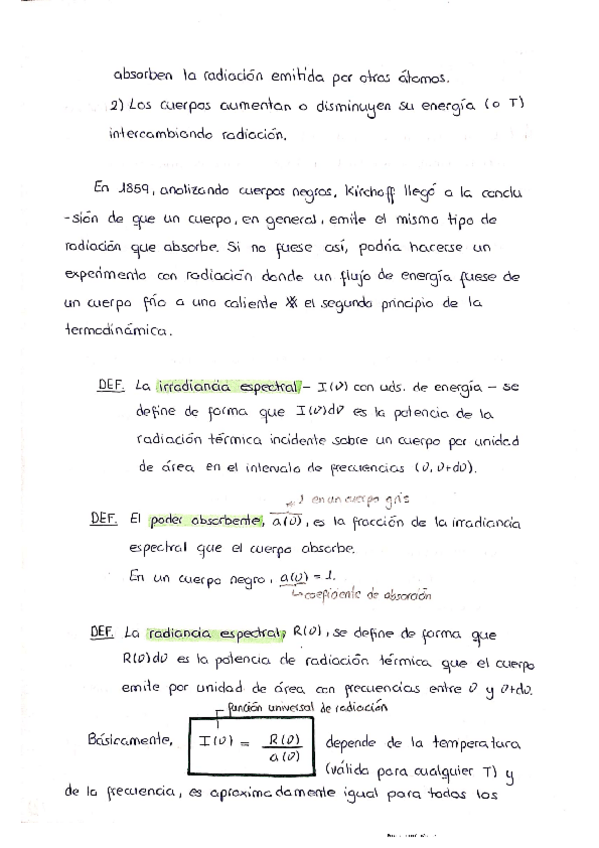 absorben la radiación emitida por otros átomos.
2) Los cuerpos aumentan o disminuyen su energía (o T)
intercambiando radiación.
En 1859, analizando cuerpos negros, Kirchoff llegó a la conclu
-sión de que un cuerpo, en general, emite el mismo tipo de
radiación que absorbe. Si no fuese así, podría hacerse un
experimento con radiación donde un flujo de energía fuese de
un cuerpo frío a uno caliente ※ el segundo principio de la
termodinámica.
DEF. La irradiancia espectral – I(ν) con uds. de energía – se
define de forma que I(ν)dν es la potencia de la
radiación térmica incidente sobre un cuerpo por unidad
de área en el intervalo de frecuencias (ν, ν+dν).
en un cuerpo gris
DEF. El poder absorbente, a(ν), es la fracción de la irradiancia
espectral que el cuerpo absorbe.
En un cuerpo negro, a(ν) = 1.
↳ coeficiente de absorción
DEF. La radiancia espectral, R(ν), se define de forma que
R(ν)dν es la potencia de radiación térmica que el cuerpo
emite por unidad de área con frecuencias entre ν y ν+dν.
función universal de radiación
Básicamente, I(ν) = R(ν) / a(ν) depende de la temperatura
(válida para cualquier T) y
de la frecuencia, es aproximadamente igual para todos los